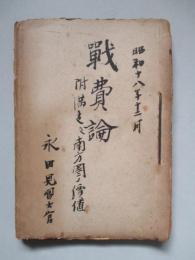 昭和十八年十二月
戰費論
附滿支ト南方圏ノ價値
永田晃國士官